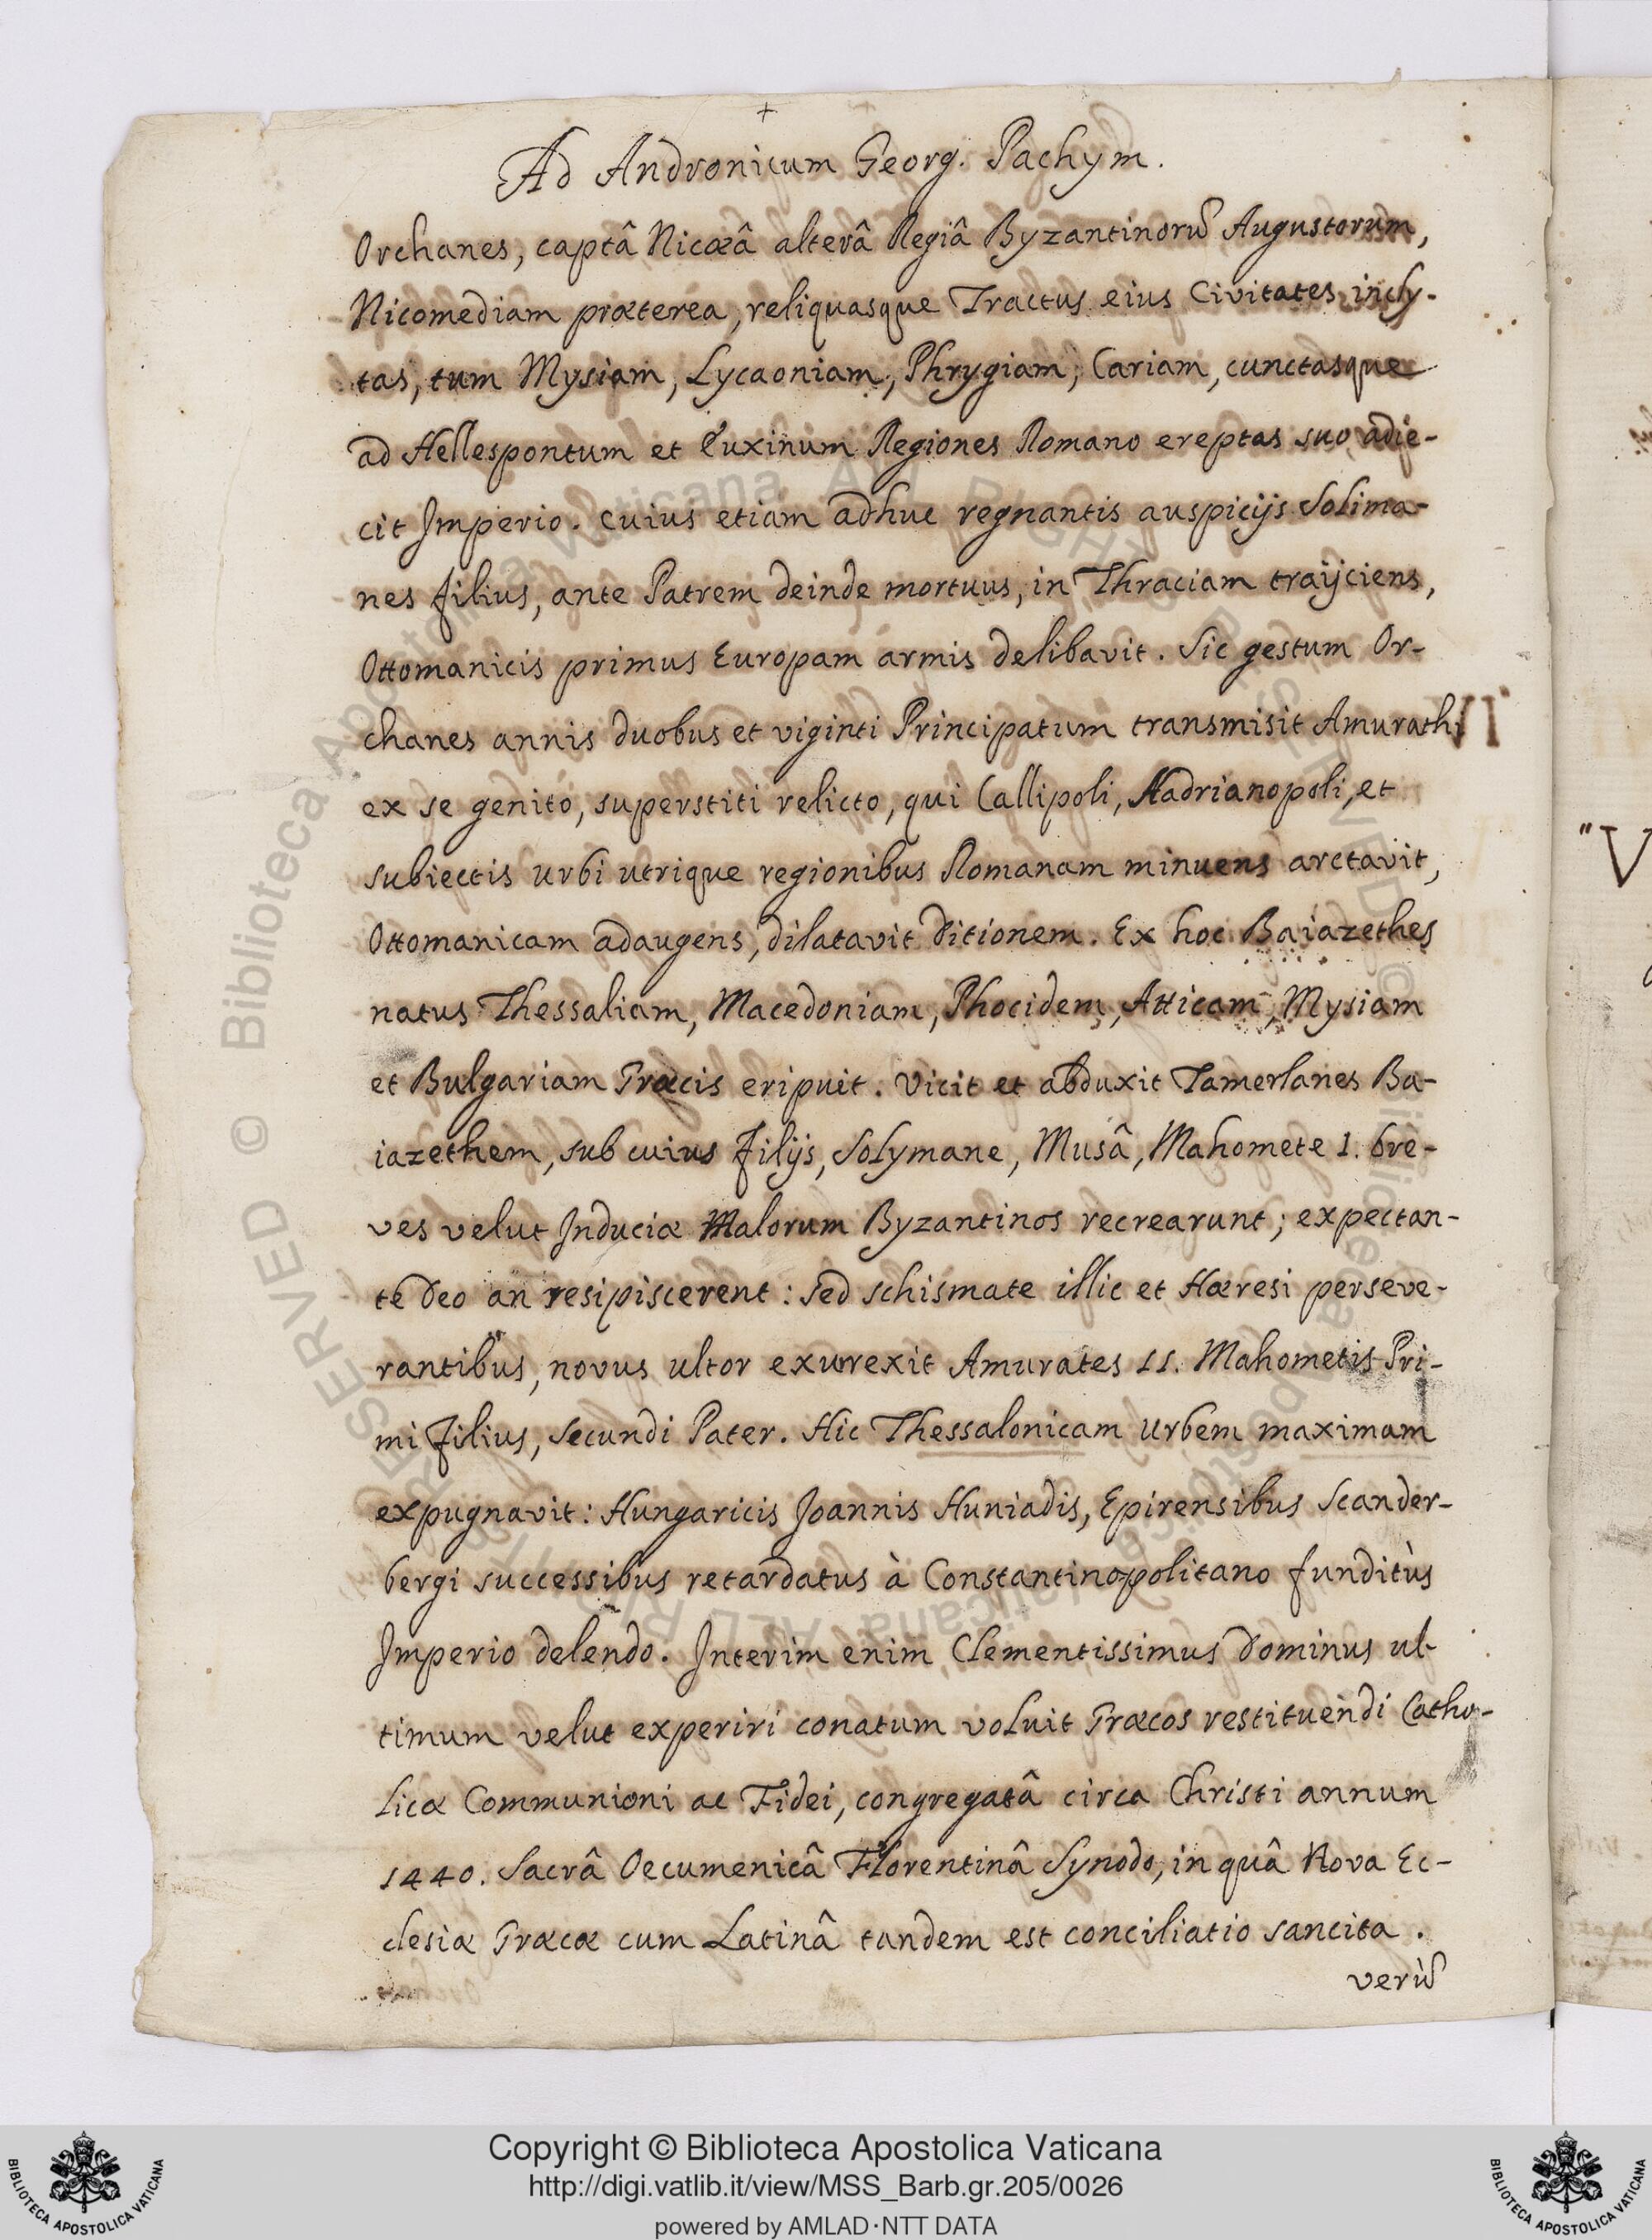 +
Ad Andronicum Georg. Pachym.
Orchanes, captâ Nicæâ alterâ Regiâ Byzantinorũ Augustorum,
Nicomediam præterea, reliquasque Tractus eius Civitates incly-
tas, tum Mysiam, Lycaoniam, Phrygiam, Cariam, cunctasque
ad Hellespontum et Euxinum Regiones Romano ereptas suo adie-
cit Imperio. Cuius etiam adhuc regnantis auspicijs Solima-
nes filius, ante Patrem deinde mortuus, in Thraciam traijciens,
Ottomanicis primus Europam armis delibavit. Sic gestum Or-
chanes annis duobus et viginti Principatum transmisit Amurathi
ex se genito, superstiti relicto, qui Callipoli, Hadrianopoli, et
subiectis urbi utrique regionibus Romanam minuens arctavit,
Ottomanicam adaugens, dilatavit ditionem. Ex hoc Baiazethes
natus Thessaliam, Macedoniam, Phocidem, Atticam, Mysiam
et Bulgariam Græcis eripuit. Vicit et abduxit Tamerlanes Ba-
iazethem, sub cuius filijs, Solymane, Musâ, Mahomete 1. bre-
ves velut Induciæ Malorum Byzantinos recrearunt; expectan-
te Deo an resipiscerent: sed schismate illic et Hæresi perseve-
rantibus, novus ultor exurrexit Amurates II. Mahometis Pri-
mi filius, secundi Pater. Hic Thessalonicam Urbem maximam
expugnavit: Hungaricis Joannis Huniadis, Epirensibus Scander-
bergi successibus retardatus à Constantinopolitano funditùs
Imperio delendo. Interim enim Clementissimus Dominus ul-
timum velut experiri conatum voluit Græcos restituendi Catho-
licæ Communioni ac Fidei, congregatâ circa Christi annum
1440. Sacrâ Oecumenicâ Florentinâ Synodo, in quâ Nova Ec-
clesiæ Græcæ cum Latinâ tandem est conciliatio sancita.
verũ
"V
© Biblioteca Apostolica Vaticana ALL RIGHTS RESERVED © Biblioteca Apostolica Vaticana ALL RIGHTS RESERVED
Copyright © Biblioteca Apostolica Vaticana
http://digi.vatlib.it/view/MSS_Barb.gr.205/0026
powered by AMLAD·NTT DATA
BIBLIOTECA APOSTOLICA VATICANA
BIBLIOTECA APOSTOLICA VATICANA